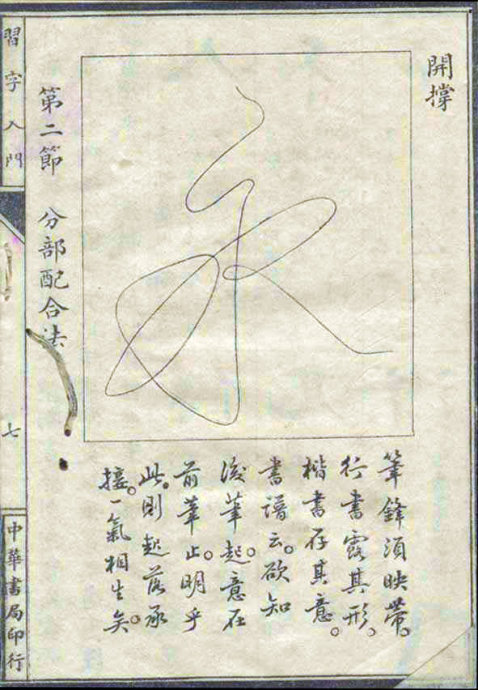 開撐
筆鋒須映帶。
行書露其形。
楷書存其意。
書譜云。欲知
後筆起。意在
前筆止。明乎
此。則起落承
接。一氣相生矣。
永
第二節　分部配合法
習字入門
七
中華書局印行